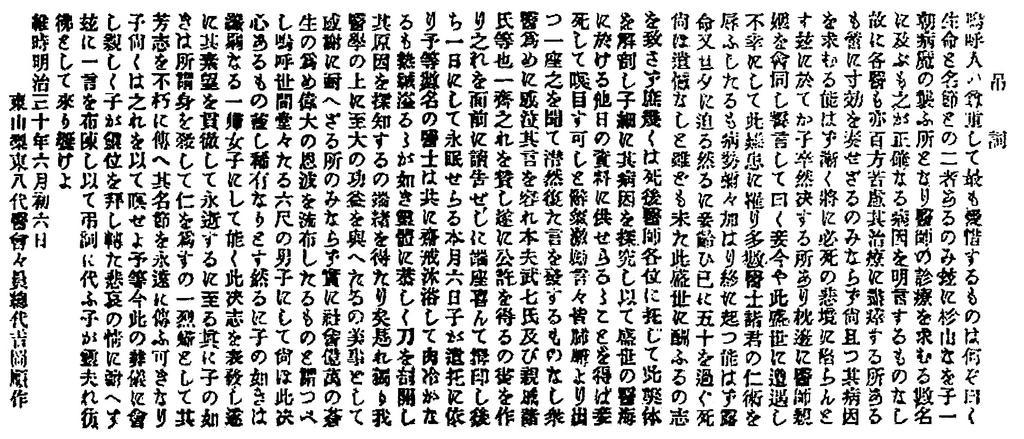 弔詞
嗚呼人ノ尊重して最も愛惜するものは何ぞ曰く
生命と名節との二者あるのみ玆に杉山なを子一
朝病魔の襲ふ所となり醫師の診療を求むる數名
に及ぶも之が正確なる病因を明言するものなし
故に各醫も亦百方苦慮其治療に從事する所ある
も曾に寸効を奏せざるのみならず尙且つ其病因
を求むる能はず漸く將に必死の悲境に陷らんと
す玆に於てか子卒然決する所あり枕邊に醫師親
姻を會同し誓言して曰く妾今や此盛世に遭遇し
不幸にして此難患に罹り多數醫士諸君の仁術を
辱ふしたるも病勢漸々加はり終に起つ能はず露
命又旦夕に迫る然るに妾齡ひ已に五十を過ぐ死
尙は遺憾なしと雖ども未た此盛世に酬ふるの志
を致さず庶幾くは死後醫師各位に托して此㒵体
を解剖し子細に其病因を探究し以て盛世の醫海
に於ける他日の資料に供せらるゝことを得は妾
死して瞑目す可しと辭氣激勵言々皆肺腑より出
つ一座之を聞て潸然復た言を發するものなし衆
醫爲めに感泣其言を容れ本夫武七氏及び親戚諸
氏等也一齊之れを賛し遂に公許を得るの後を作
り之れを面前に讀告せしに端座喜んて捺印し後
ち一日にして永眠せらる本月六日子が遺托に依
り予等數名の醫士は共に齋戒沐浴して肉冷かな
るも熱誠溢るゝが如き靈體に恭しく刀を剖開し
其原因を探知するの端緒を得たり矣是れ獨り我
醫學の上に至大の功益を與へたるの美事として
感謝に耐へざる所のみならず實に社會億萬の蒼
生の爲め偉大の恩波を流布したるものと謂つべ
し嗚呼世間堂々たる六尺の男子にして尙は此決
心あるもの蓋し稀有なりとす然るに子の如きは
纖弱なる一婦女子にして能く此決志を表發し遂
に其素望を貫徹して永逝するに至る眞に子の如
きは所謂身を殺して仁を爲すの一烈婦として其
芳志を不朽に傳へ其名節を永遠に傳ふ可きなり
子尙くは之れを以て瞑せよ予等今此の葬儀に會
し親しく子が靈位を拜し轉た悲哀の情に耐へす
玆に一言を布陳し以て弔詞に代ふ子が靈夫れ彷
彿として來り饗けよ
維時明治三十年六月初六日
東山梨東八代醫會々員總代吉岡順作